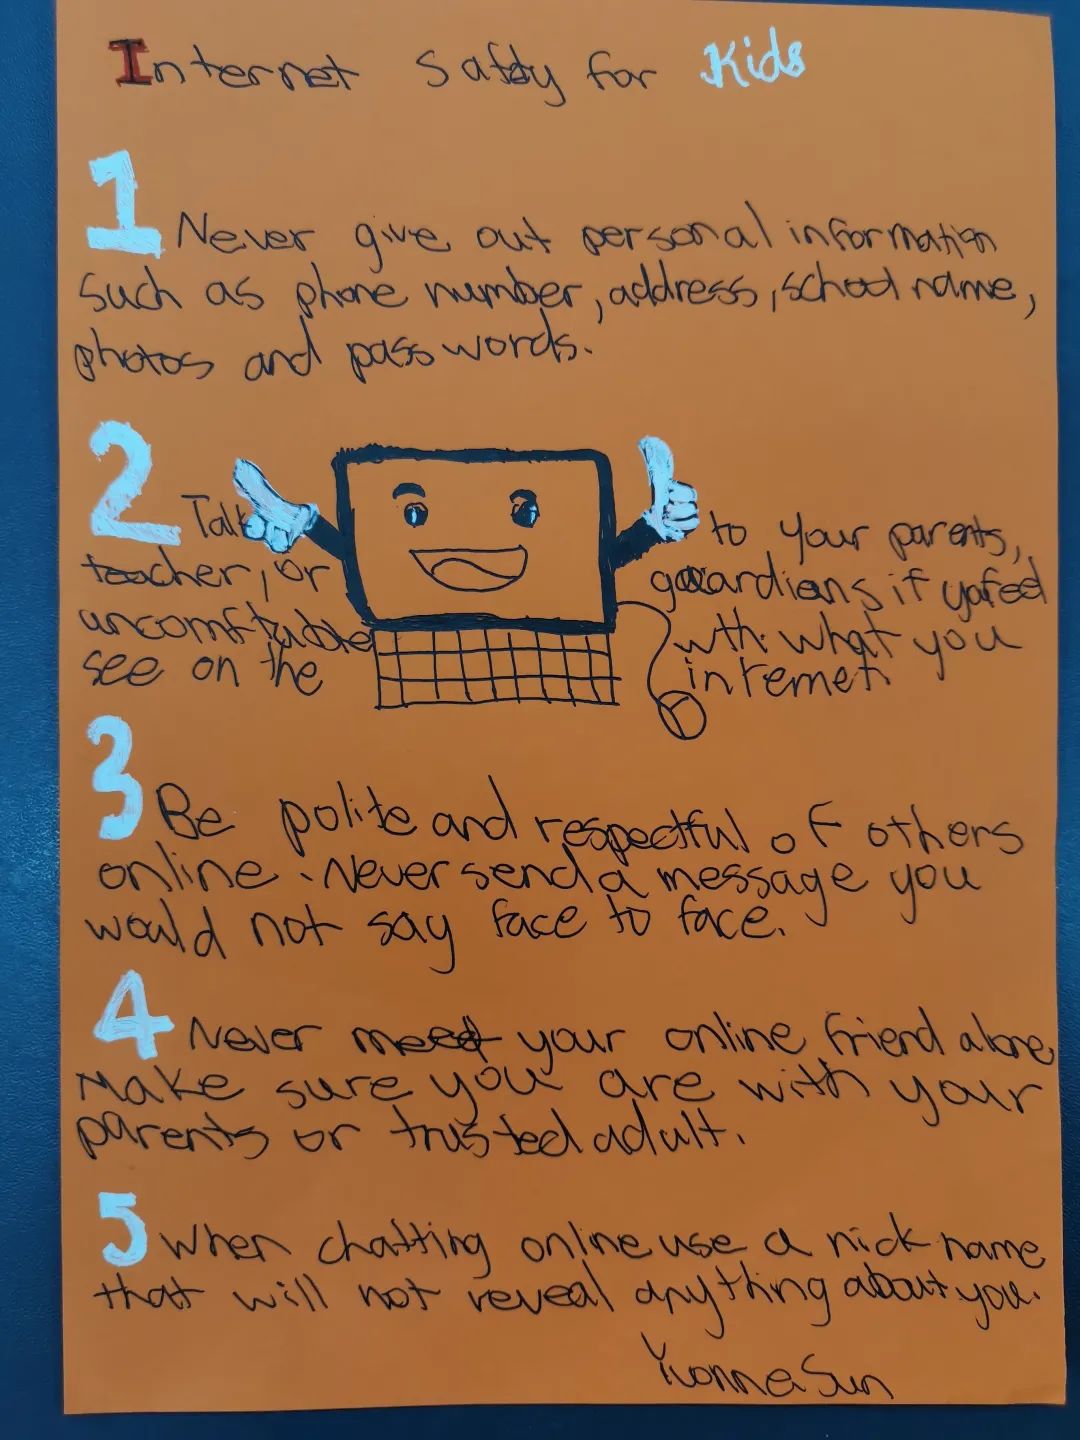 Internet Safty for Kids
1 Never give out personal information
such as phone number, address, school name,
photos and pass words.
2 Talk to your parents,
teacher, or guardians if yofeel
uncomftable wth what you
see on the internet.
3 Be polite and respectful of others
online. Never send a message you
would not say face to face.
4 Never meet your online friend alone
Make sure you are with your
parents or trusted adult.
5 When chatting online use a nick name
that will not reveal anything about you.
Yvonne Sun